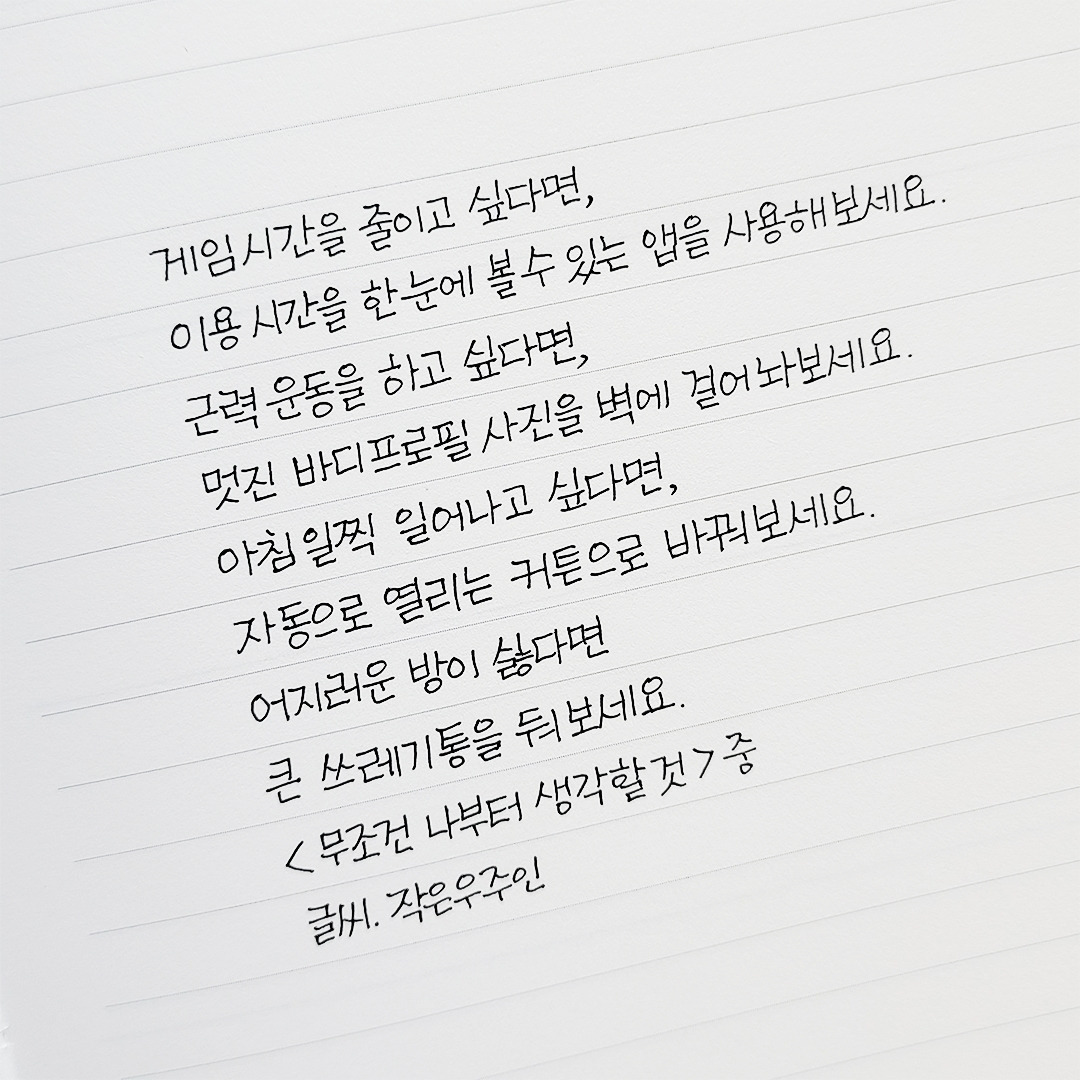 게임 시간을 줄이고 싶다면,
이용 시간을 한눈에 볼 수 있는 앱을 사용해보세요.
근력 운동을 하고 싶다면,
멋진 바디프로필 사진을 벽에 걸어놔보세요.
아침 일찍 일어나고 싶다면,
자동으로 열리는 커튼으로 바꿔보세요.
어지러운 방이 싫다면
큰 쓰레기통을 둬보세요.
<무조건 나부터 생각할 것> 중
글씨. 작은우주인